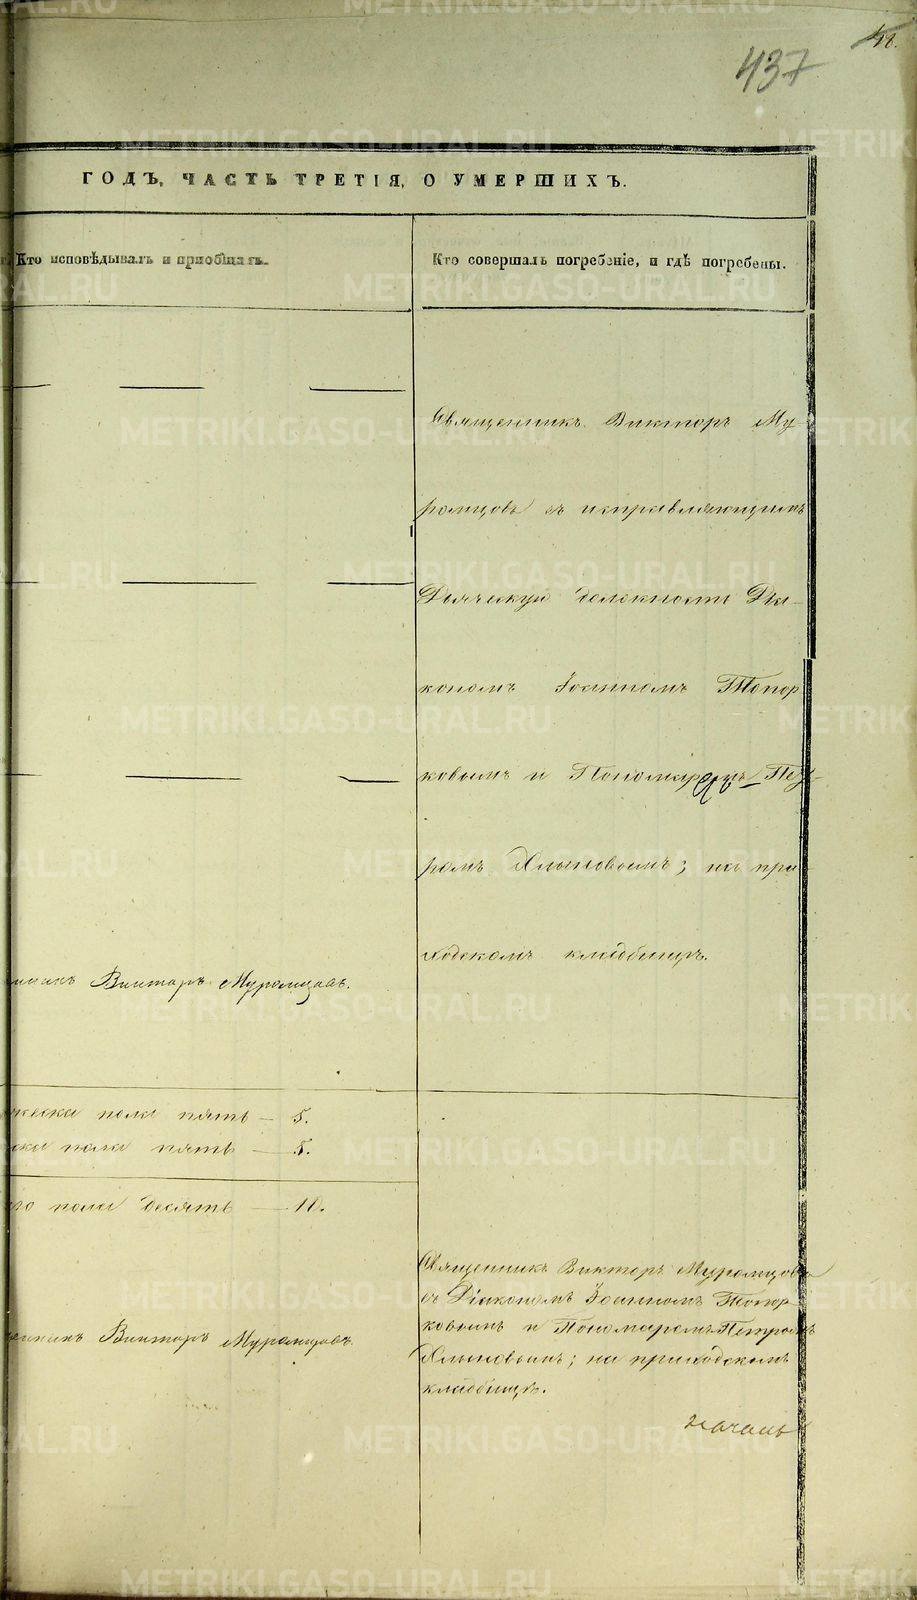 437
ГОДЪ, ЧАСТЬ ТРЕТІЯ, О УМЕРШИХЪ.
Кто исповѣдывалъ и пріобщалъ.
Кто совершалъ погребеніе, и гдѣ погребены.
Священникъ Викторъ Му-
ромцовъ съ исправляющимъ
Дьяческую должность Діа-
кономъ Іоанномъ Топор
ковымъ и Пономаремъ Пет-
ромъ Хлыновымъ; на при-
ходскомъ кладбищѣ.
Викторъ Муромцовъ.
пола пять — 5.
пола пять — 5.
пола десять — 10.
Священникъ Викторъ Муромцовъ
съ Діакономъ Іоанномъ Топор
ковымъ и Пономаремъ Петромъ
Хлыновымъ; на приходскомъ
кладбищѣ.
Викторъ Муромцовъ
METRIKI.GASO-URAL.RU